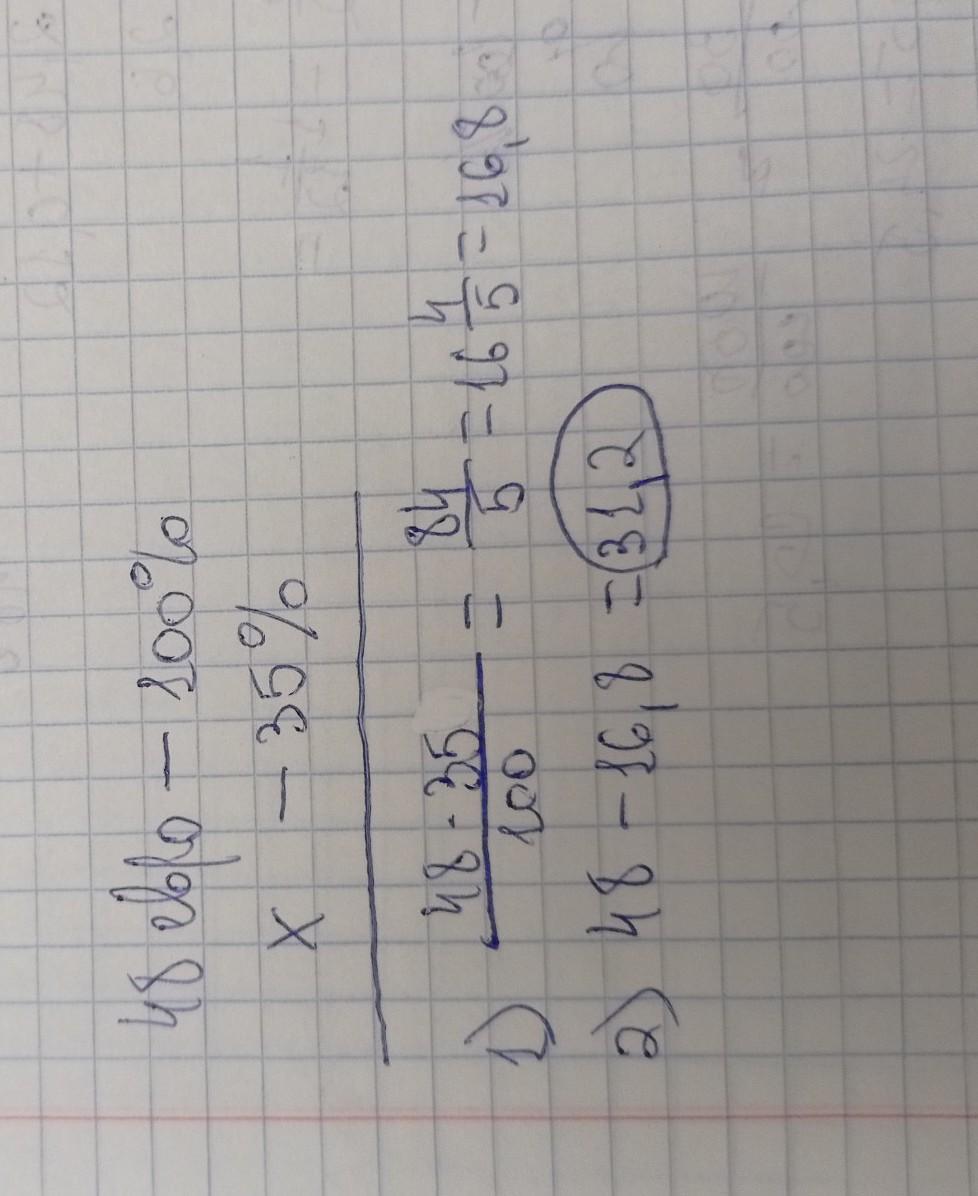 48 евро — 100%
x — 35%
1) 48 · 35 / 100 = 84/5 = 16 4/5 = 16,8
2) 48 – 16,8 = 31,2